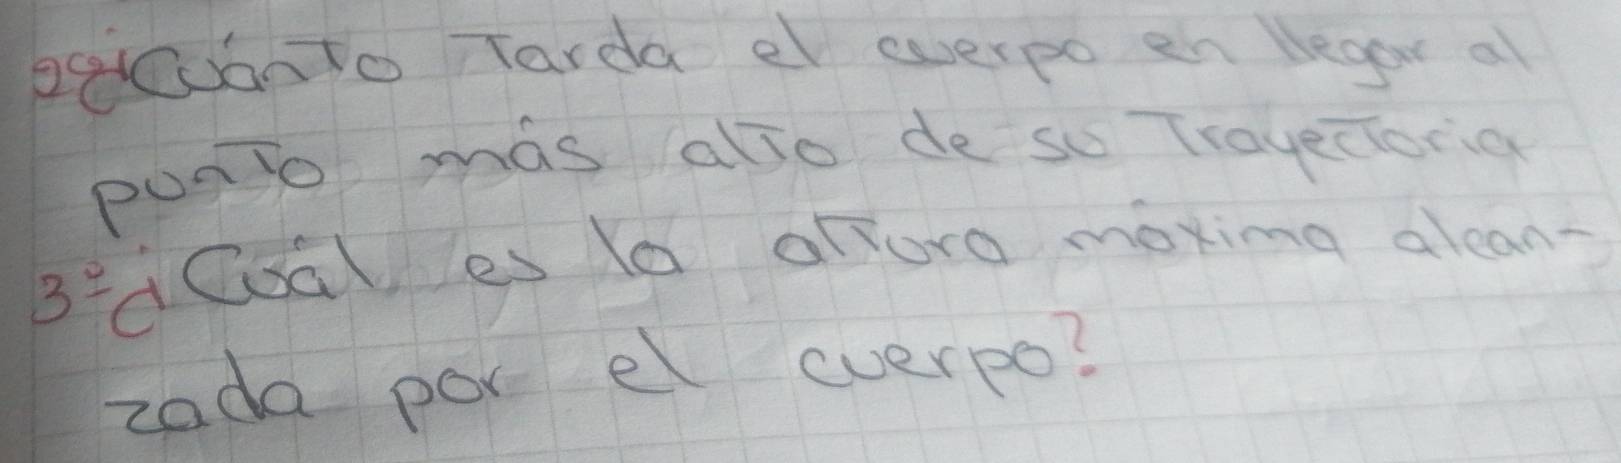 2º¿Cuánto Tarda el cuerpo en llegar al
punto más alto de su Trayectoria
3º¿Cuál es la altura máxima alcan-
zada por el cuerpo?